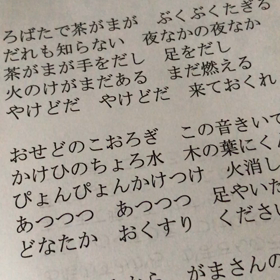 ろばたで茶がまが　ぶくぶくたぎる
だれも知らない　夜なかの夜なか
茶がまが手をだし　足をだし
火のけがまだある　まだ燃える
やけどだ　やけどだ　来ておくれ
おせどのこおろぎ　この音きいて
かけひのちょろ水　木の葉にくん
ぴょんぴょんかけつけ　火消し
あつつつ　あつつつ　足やいた
どなたか　おくすり　ください
がまさんの